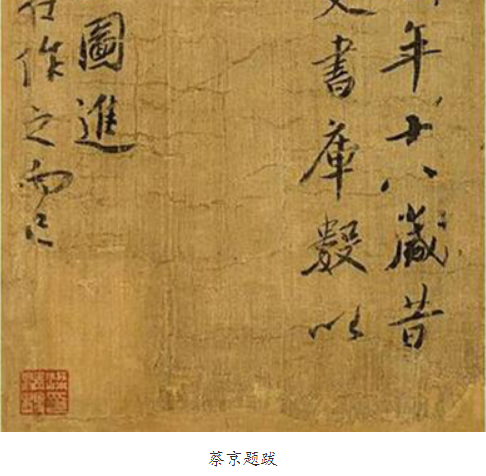 年十八歲昔
文書庫數以
圖進
作之而已
蔡京题跋